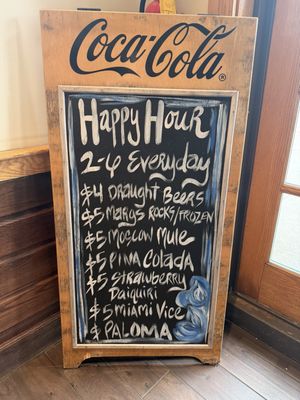 Coca-Cola®
Happy Hour
2-6 Everyday
$4 Draught Beers
$5 Margs Rocks/Frozen
$5 Moscow Mule
$5 Pina Colada
$5 Strawberry
Daiquiri
$5 Miami Vice
$ Paloma